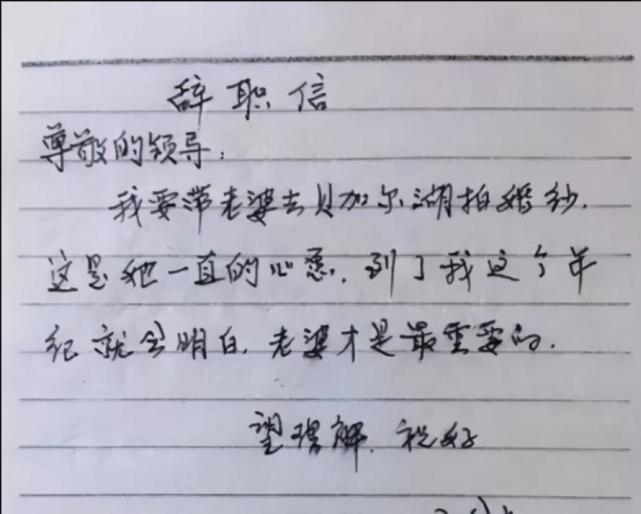 辞职信
尊敬的领导:
我要带老婆去贝加尔湖拍婚纱.
这是她一直的心愿.到了我这个年
纪就会明白.老婆才是最重要的.
望理解.祝好